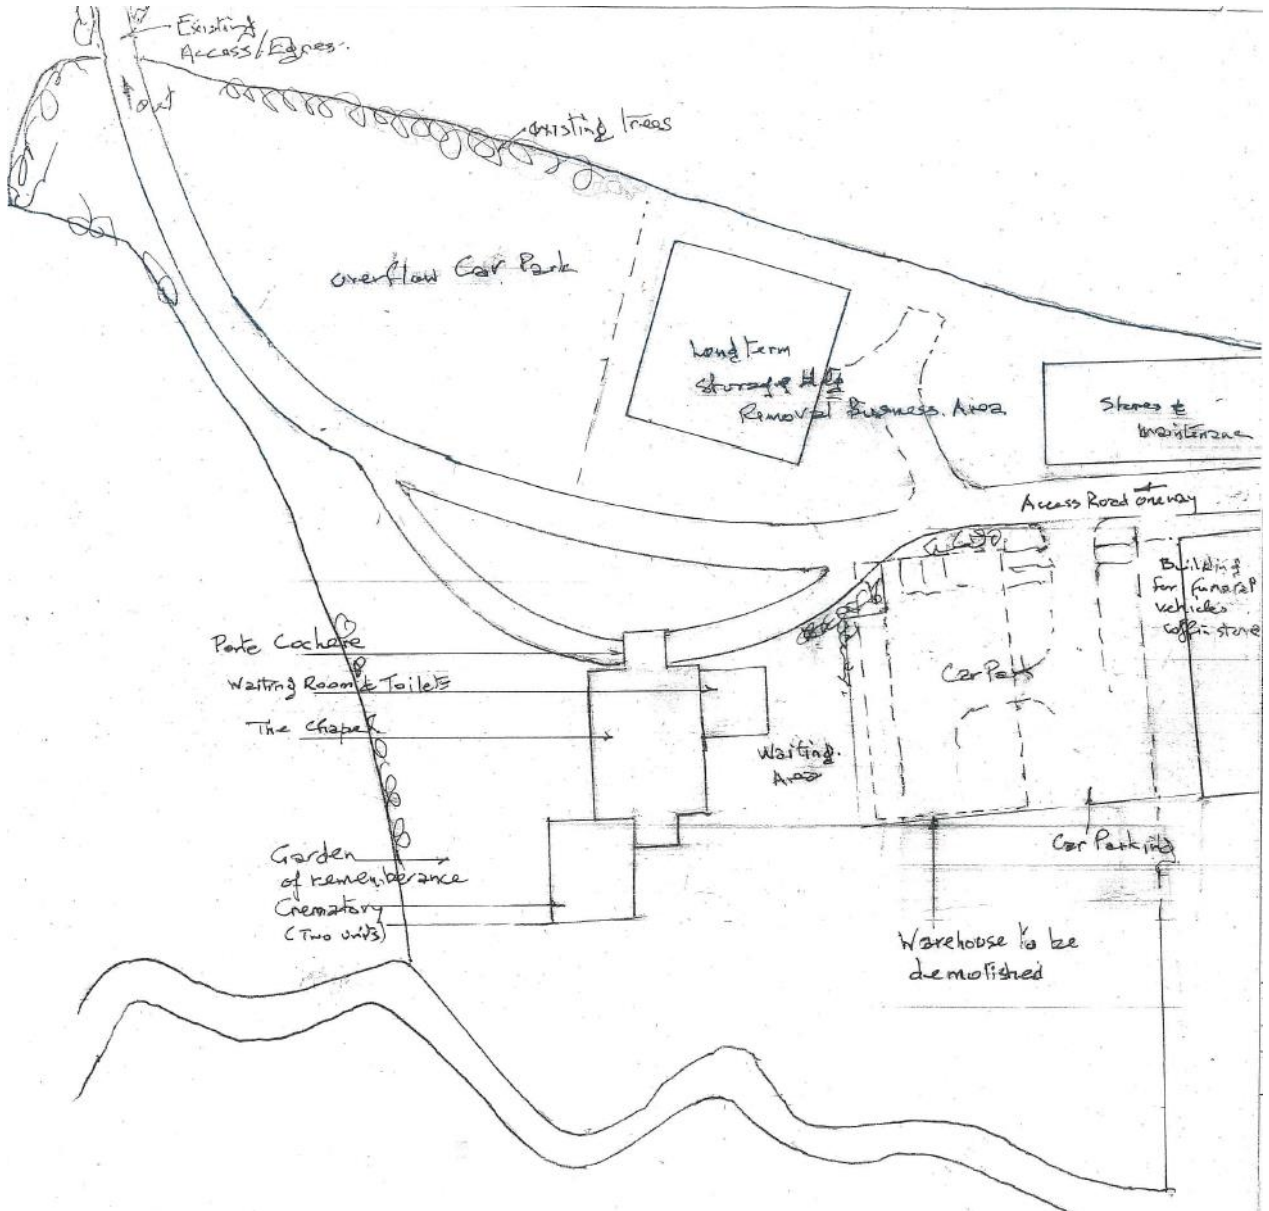 Existing
Access/Egress.
out
existing trees
overflow Car Park
Long term
Storage Bldg
Removal Business Area
Stores &
maintenance
Access Road oneway
Building
for funeral
vehicles
coffin store
Porte Cochere
Waiting Room & Toilets
The Chapel
Car Park
Waiting
Area
Garden
of rememberance
Crematory
(Two units)
Car Parking
Warehouse to be
demolished